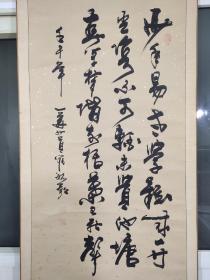 少年易老學難成一寸
光陰不可輕未覺池塘
春草夢階前梧葉已秋聲